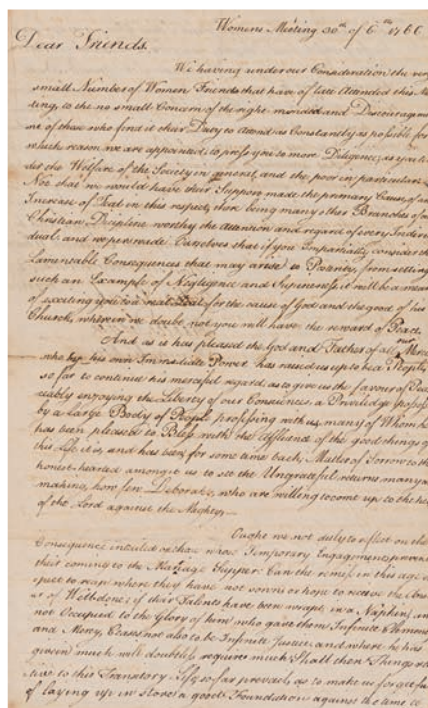 Womens Meeting 30th of 6th 1766
Dear Friends.
We having under our Consideration the very
small Number of Women Friends that have of late Attended this Mee
ting, to the no small Concern of the right minded and Discouragem
ent of those who find it their Duty to attend as Constantly as possible for
which reason we are appointed to press you to more Diligence, as you
der the Welfare of the Society in general, and the poor in particular
Not that we would have their Support made the primary Cause of an
Increase of Zeal in this respect, there being many other Branches of
Christian Discipline worthy the Attention and regard of every Indivi
dual, and we persuade Ourselves that if you Impartially consider the
Lamentable Consequences that may arise to Posterity, from setting
such an Example of Negligence and Supineness, it will be a mean
of exciting you to a real Zeal for the cause of God and the good of his
Church, wherein we doubt not you will have the reward of Peace
And as it has pleased the God and Father of all our Merc
who by his own Immediate Power has raised us up to be a People,
so far to continue his merciful regard, as to give us the favour of Pea
ceably enjoying the Liberty of our Consciences, a Priviledge possess
by a Large Body of People professing with us, many of Whom he
has been pleased to Bless with the Affluence of the good things of
this Life it is, and has been for some time back, Matter of Sorrow to the
honest hearted amongst us to see the Ungrateful returns many are
making, how few Deborahs, who are willing to come up to the help
of the Lord against the Mighty,
Ought we not duly to reflect on the
Consequence entailed on those whose Temporary Engagements prevent
their coming to the Marriage Supper: Can the remiss in this age ex
pect to reap where they have not sown or hope to receive the Answ
er of Welldone; if their Talents have been wrapt in a Napkin, and
not Occupied to the Glory of him who gave them Infinite Clemency
and Mercy, Ceases not also to be Infinite Justice, and where he has
given much will doubtless require much, Shall then Things rela
tive to this Transitory Life, so far prevail, as to make us forgetful
of laying up in store a good Foundation against the time to